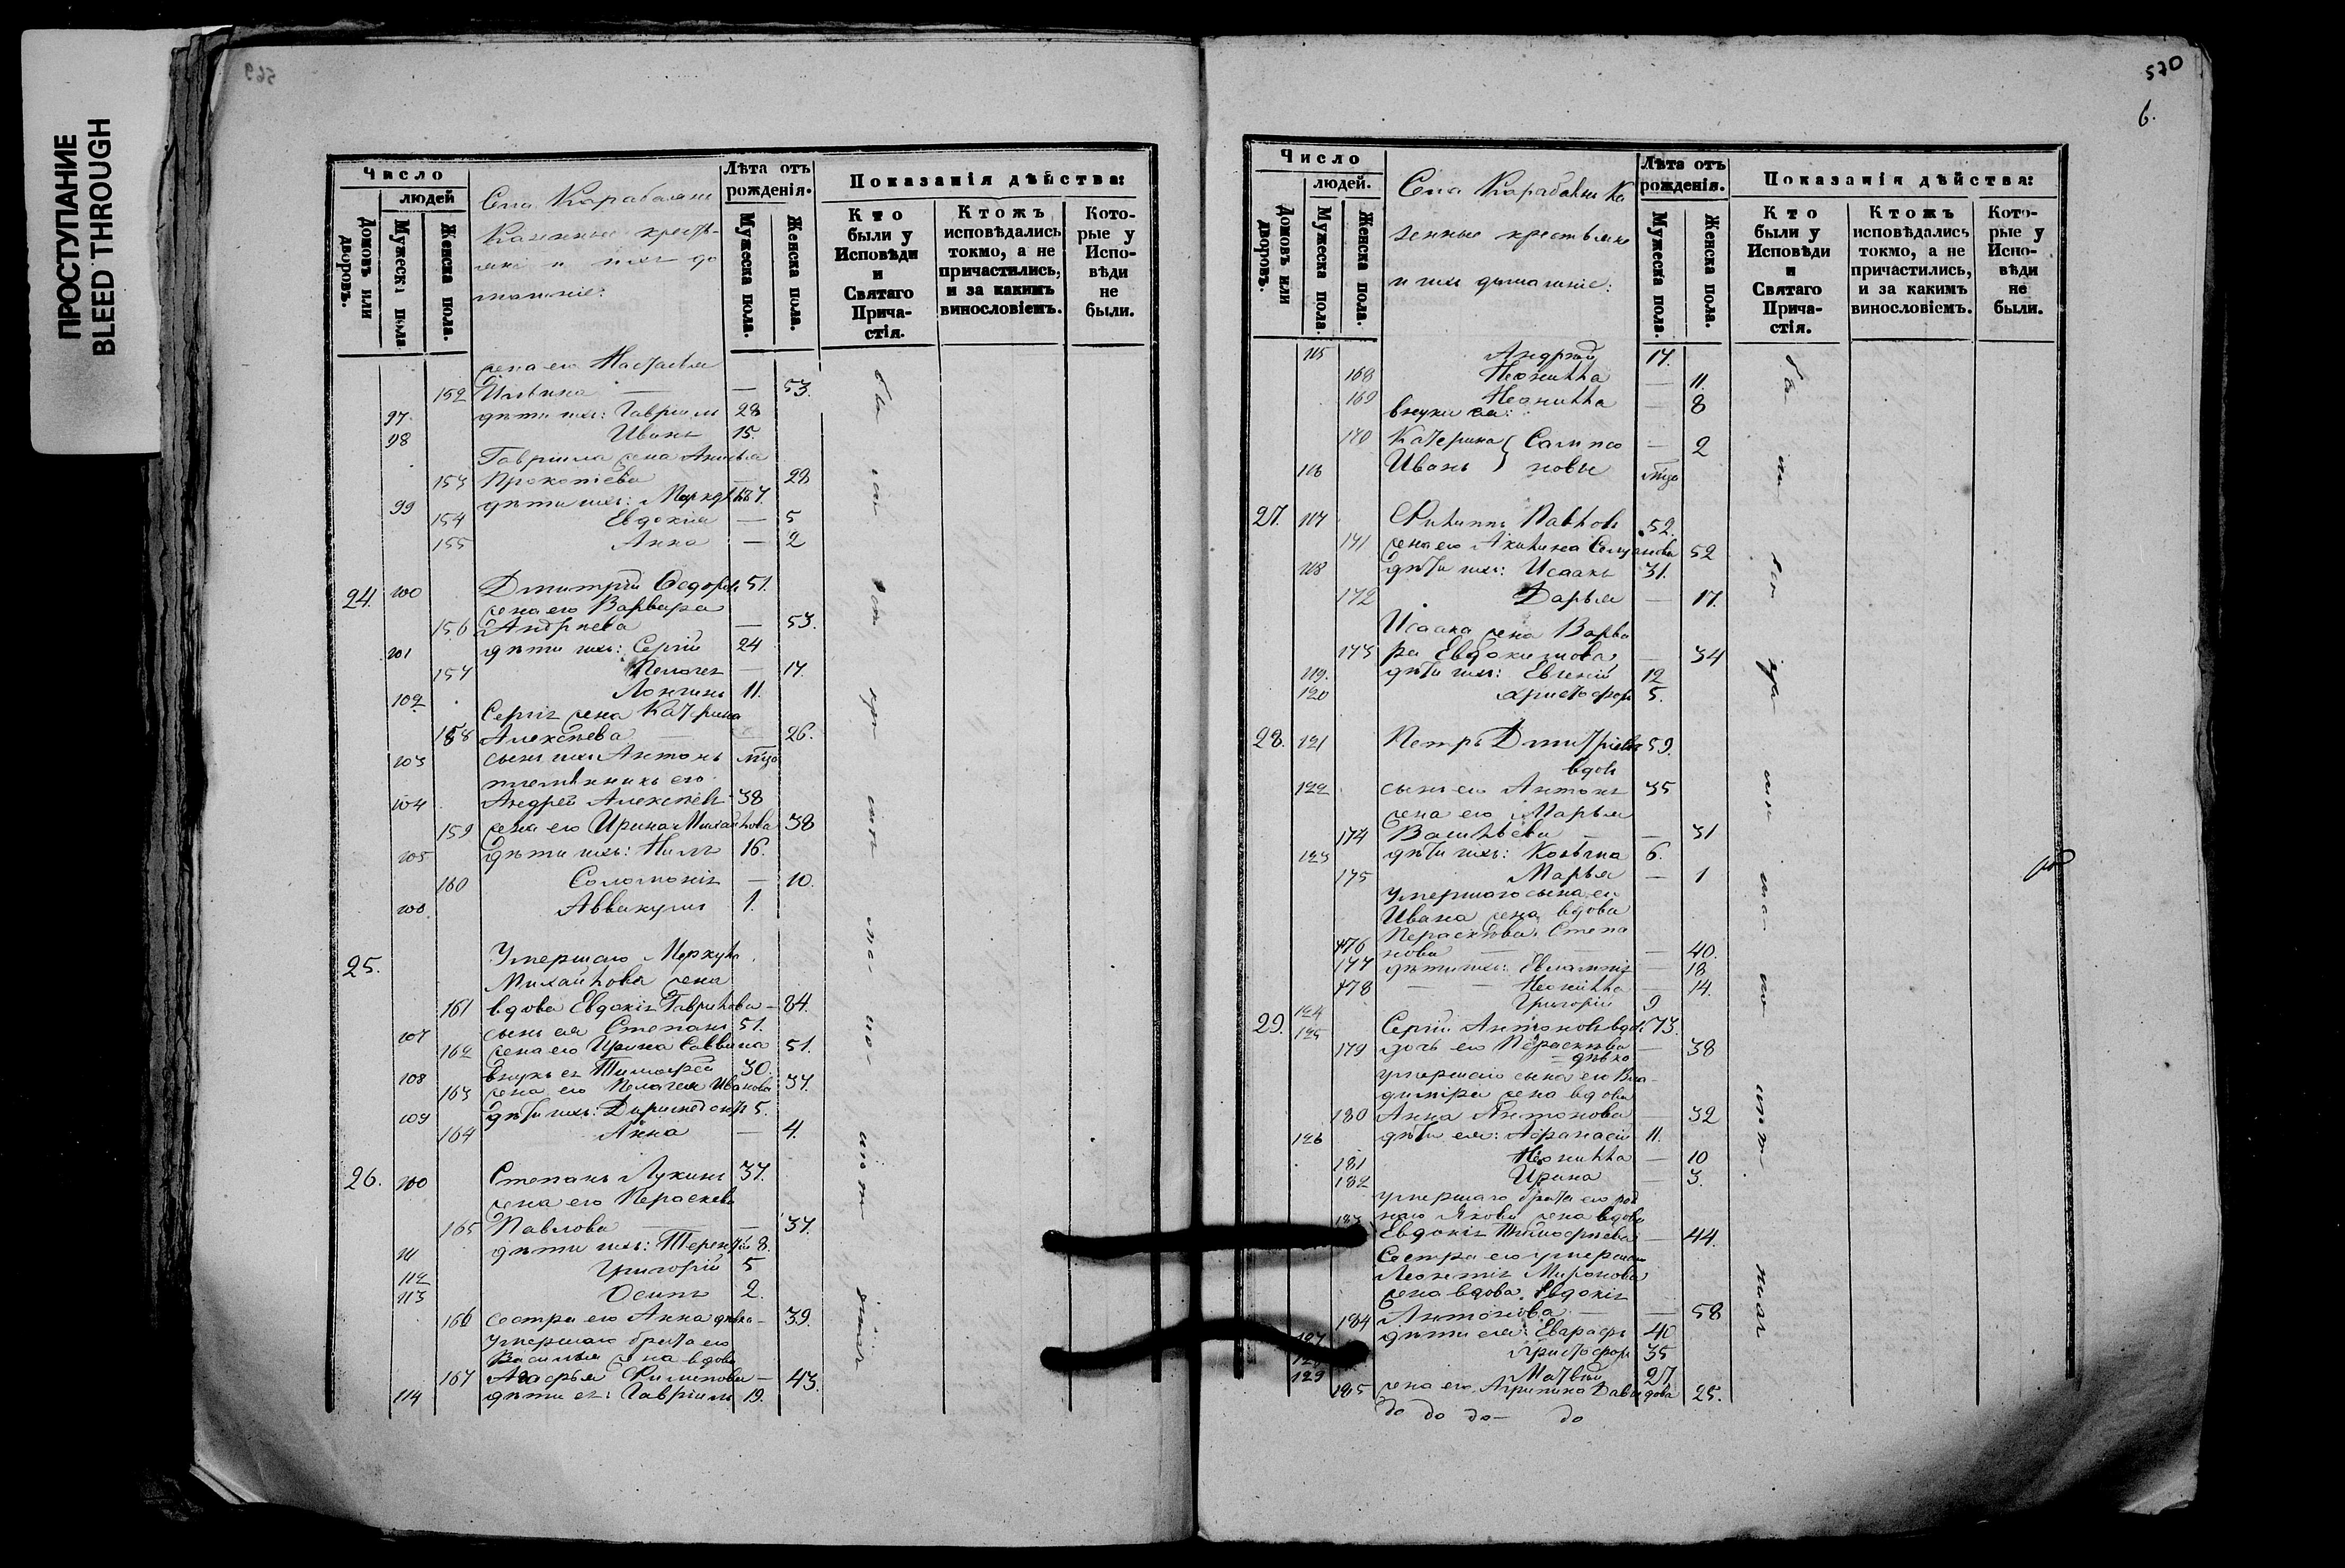 ПРОСТУПАНИЕ
BLEED THROUGH
569
Число
людей
Домовъ или дворовъ.
Мужеска пола.
Женска пола.
Села Карабаяни
Казенные кресть-
яне и ихъ до
машніе:
Лѣта отъ рожденія.
Мужеска пола.
Женска пола.
Показанія дѣйства:
Кто были у Исповѣди и Святаго Причастія.
Ктожъ исповѣдались токмо, а не причастились, и за какимъ винословіемъ.
Которые у Исповѣди не были.
жена его Настасья
152 Ильина — — 53.
97. дѣти ихъ: Гавріилъ 28
98 Иванъ 15.
Гавріила жена Анисья
153 Прокопіева — 28
99 дѣти ихъ: 7.
154 Евдокія — 5
155 Анна — 2
24. 100 Дмитрій Ѳедоровъ 51.
жена его Варвара
156 Андреева — 53.
101 дѣти ихъ: Сергій 24
157 Пелагея — 17.
102 Логгинъ 11.
Сергія жена Катерина
158 Алексѣева — 26.
103 сынъ ихъ Антонъ
племянникъ его
104 Андрей Алексѣевъ 38
159 жена его Ирина Михайлова 38
105 дѣти ихъ: Нилъ 16.
160 Соломонія — 10.
106 Аввакумъ 1.
25. Умершаго Меркула
Михайлова жена
161 вдова Евдокія Гаврилова — 84.
107 сынъ ея Степанъ 51.
162 жена его Ирина Саввина 51.
108 внукъ ея Тимофей 30.
163 жена его Пелагея Иванова 37.
109 дѣти ихъ: 5.
164 Анна — 4.
26. 110 Степанъ Лукинъ 37.
жена его Пераскева
165 Павлова — — 37.
111 дѣти ихъ: Терентій 8.
112 Григорій 5
113 Осипъ 2.
166 сестра его Анна дѣвка — 39.
умершаго брата его
Василья жена вдова
167 Агафья Филипова — 43.
114 дѣти ея: Гавріилъ 19.
570
6.
Число
людей.
Домовъ или дворовъ.
Мужеска пола.
Женска пола.
Села Карабаяни Ка
зенные крестьяне
и ихъ домашніе:
Лѣта отъ рожденія.
Мужеска пола.
Женска пола.
Показанія дѣйства:
Кто были у Исповѣди и Святаго Причастія.
Ктожъ исповѣдались токмо, а не причастились, и за какимъ винословіемъ.
Которые у Исповѣди не были.
115 Андрей 17.
168 Неонилла — 11.
169 Неонилла — 8
внуки ея:
170 Катерина } Сампсо — 2
116 Иванъ } новы
27. 117 Филиппъ Павловъ 52.
171 жена его Акилина 52
118 дѣти ихъ: Исаакъ 31.
172 Дарья — 17.
Исаака жена Варва
173 ра Евдокимова — 34
119. дѣти ихъ: Евгеній 12
120 Христофоръ 5.
28. 121 Петръ Дмитріевъ 59.
вдовъ
122 сынъ его Антонъ 35
жена его Марья
174 Васильева — — 31
123 дѣти ихъ: Козьма 6.
175 Марья — 1
Умершаго сына его
Ивана жена вдова
Пераскева Степа
176 нова — — 40.
177 дѣти ихъ: Евлампія — 18
178 — — Неонилла — 14.
124 Григорій 9
29. 125 Сергій Антоновъ вдов. 73.
179 дочь его Пераскева — 38
= дѣвка
умершаго сына его Вла-
диміра жена вдова
180 Анна Антонова — 32
126 дѣти ея: Афанасій 11.
181 Неонилла — 10
182 Ирина — 3.
умершаго брата его род
наго Якова жена вдова
183 Евдокія Тимофеева — 44.
Сестра его умершаго
Леонтія Миронова
жена вдова Евдокія
184 Антонова — — 58
127 дѣти ея: Евграфъ 40
128 Христофоръ 35
129 Матвѣй 27
185 жена его Агрипина Давыдова 25.
до до до — до